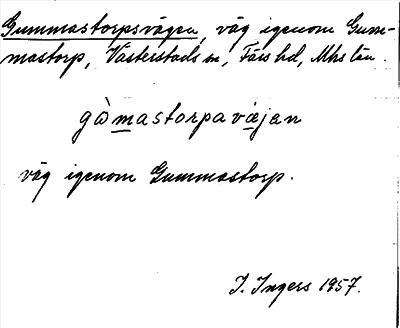 Gummastorpsvägen, väg igenom Gum-
mastorp, Västerstads sn, Färs hd, Mhs län.
gòmastorpavæjen
väg igenom Gummastorp.
I. Ingers 1957.